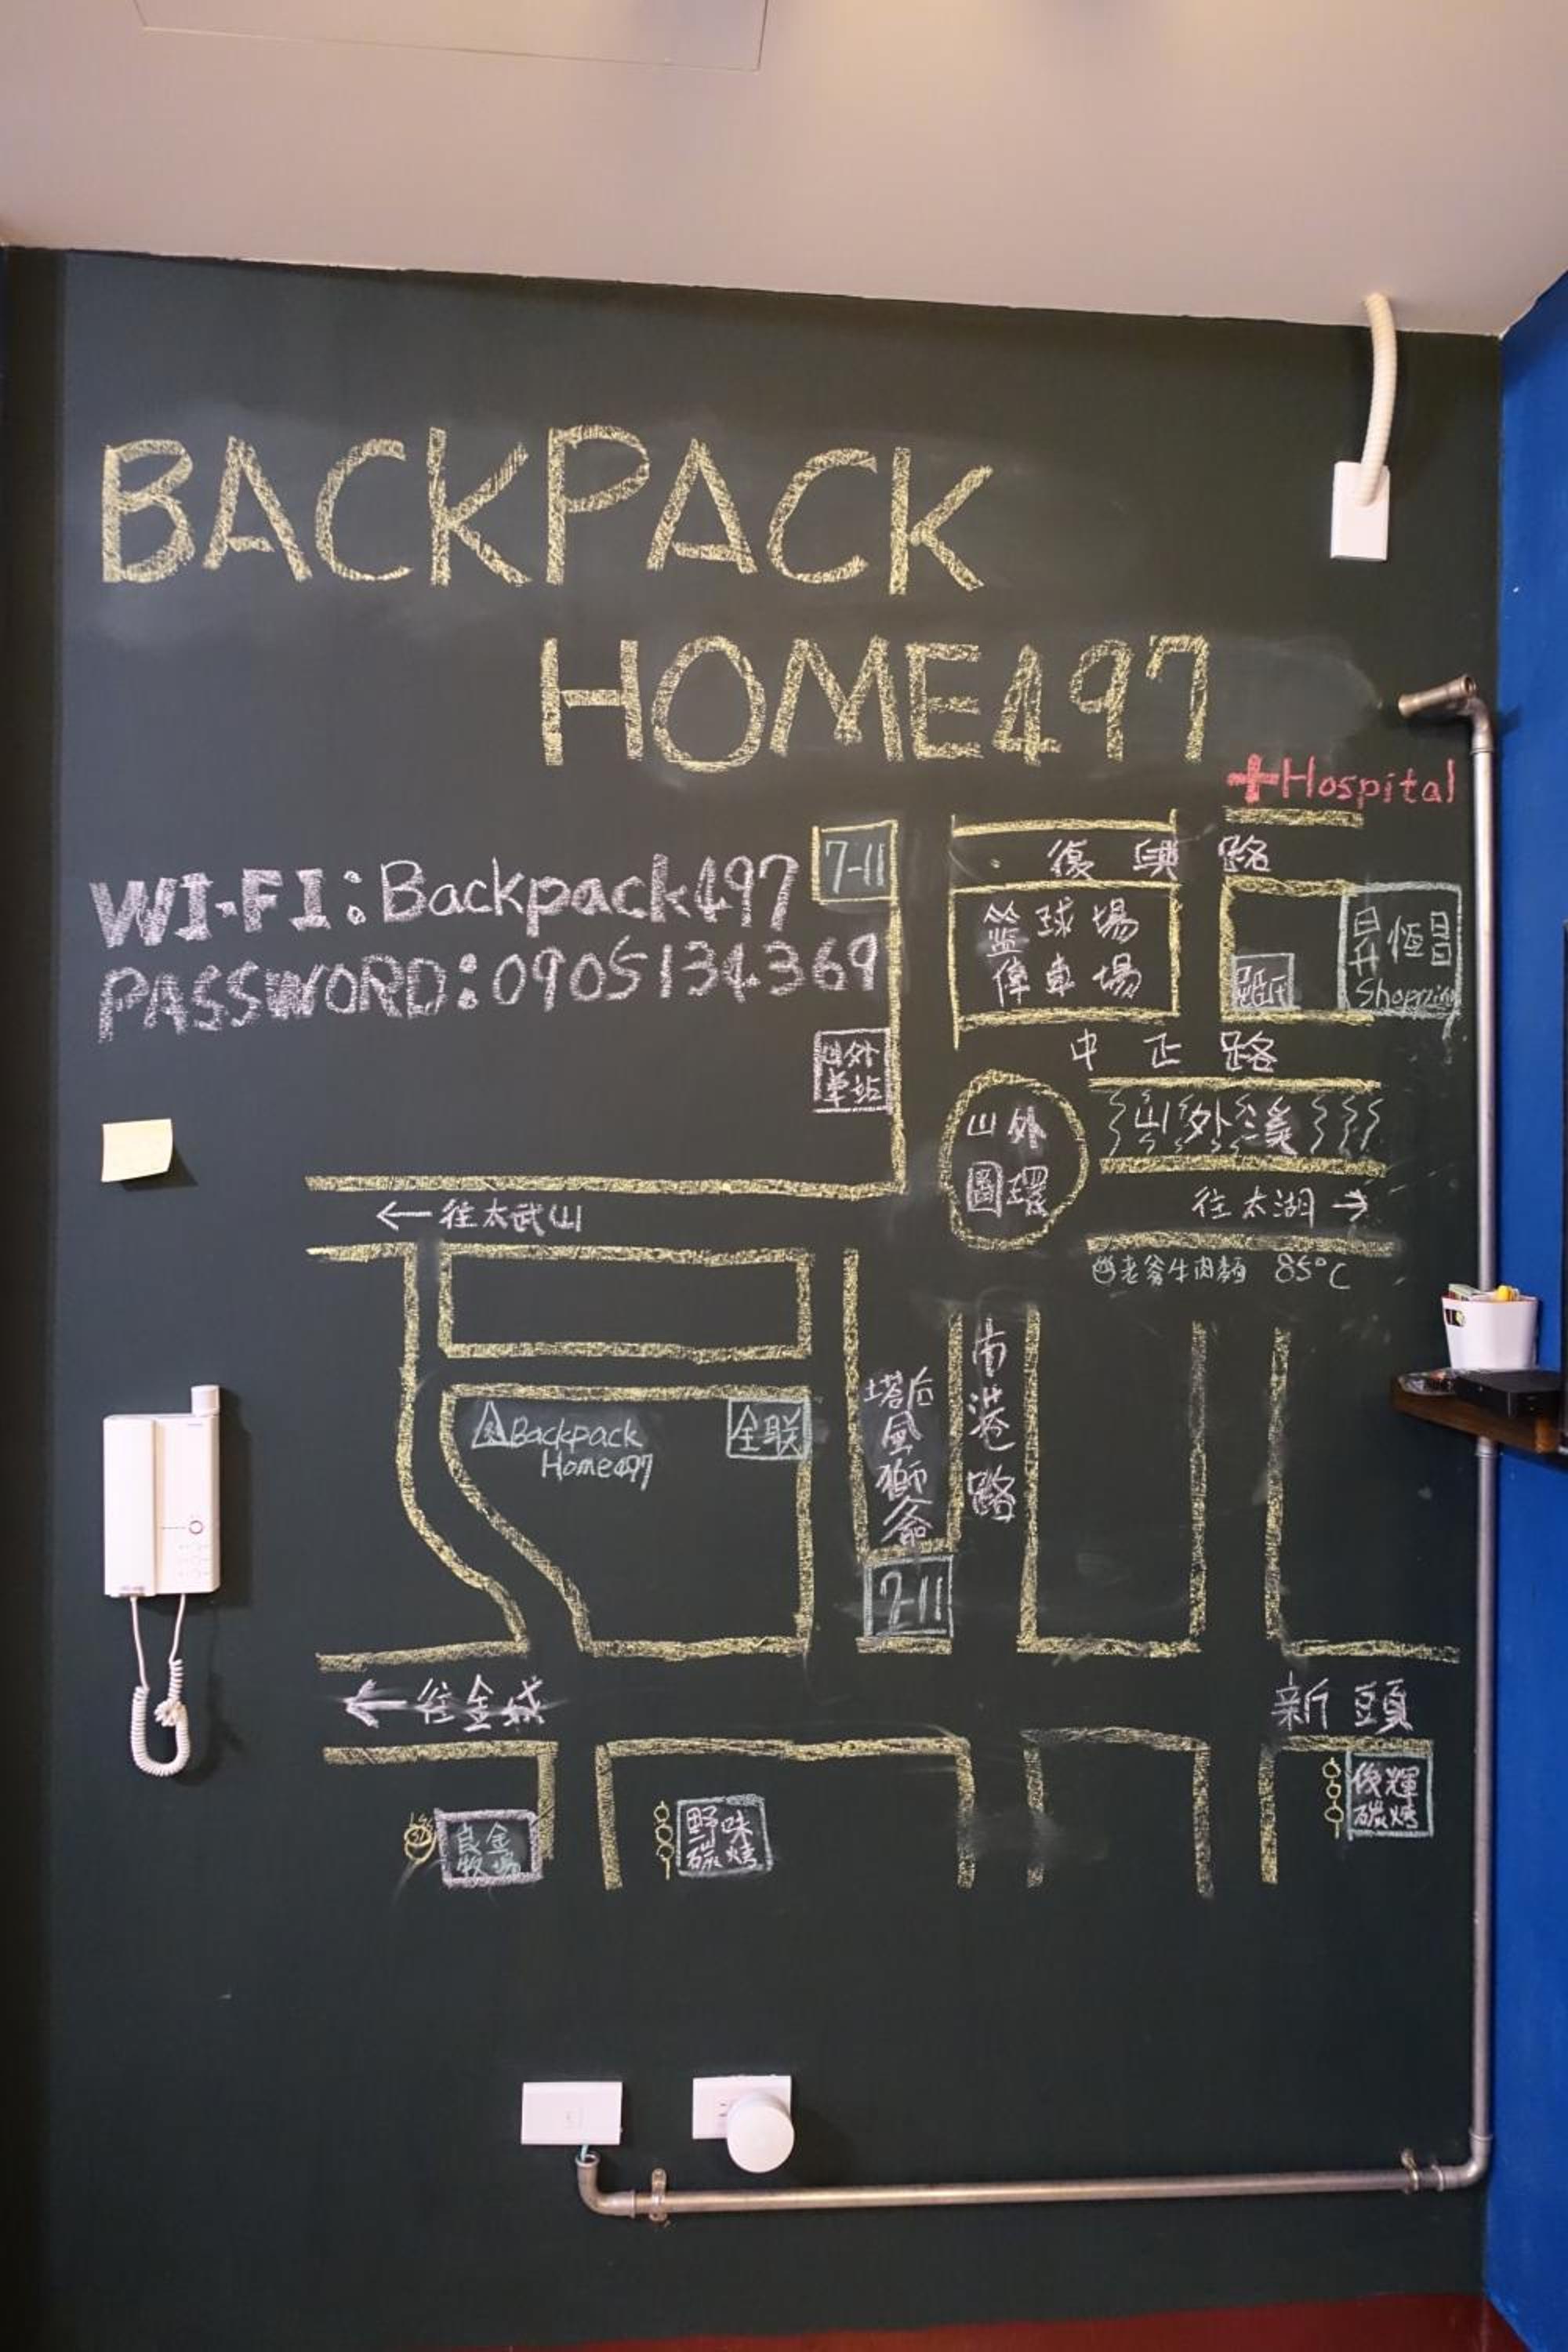 BACKPACK
HOME497
+Hospital
WI-FI:Backpack497
PASSWORD:0905134369
7-11
復興路
籃球場
停車場
昇恆昌
Shopping
中正路
山外
車站
山外
圓環
山外溪
←往太武山
往太湖→
老爹牛肉麵 85°C
Backpack
Home497
全联
塔后風獅爺
市港路
7-11
←往金城
新頭
良金
牧場
野味
碳烤
俊輝
碳烤